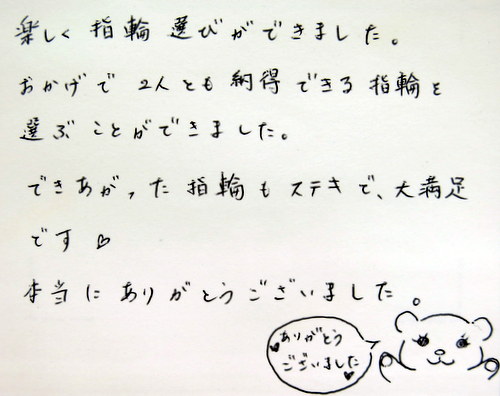 楽しく指輪選びができました。
おかげで2人とも納得できる指輪を
選ぶことができました。
できあがった指輪もステキで、大満足
です♡
本当にありがとうございました。
ありがとう
ございました